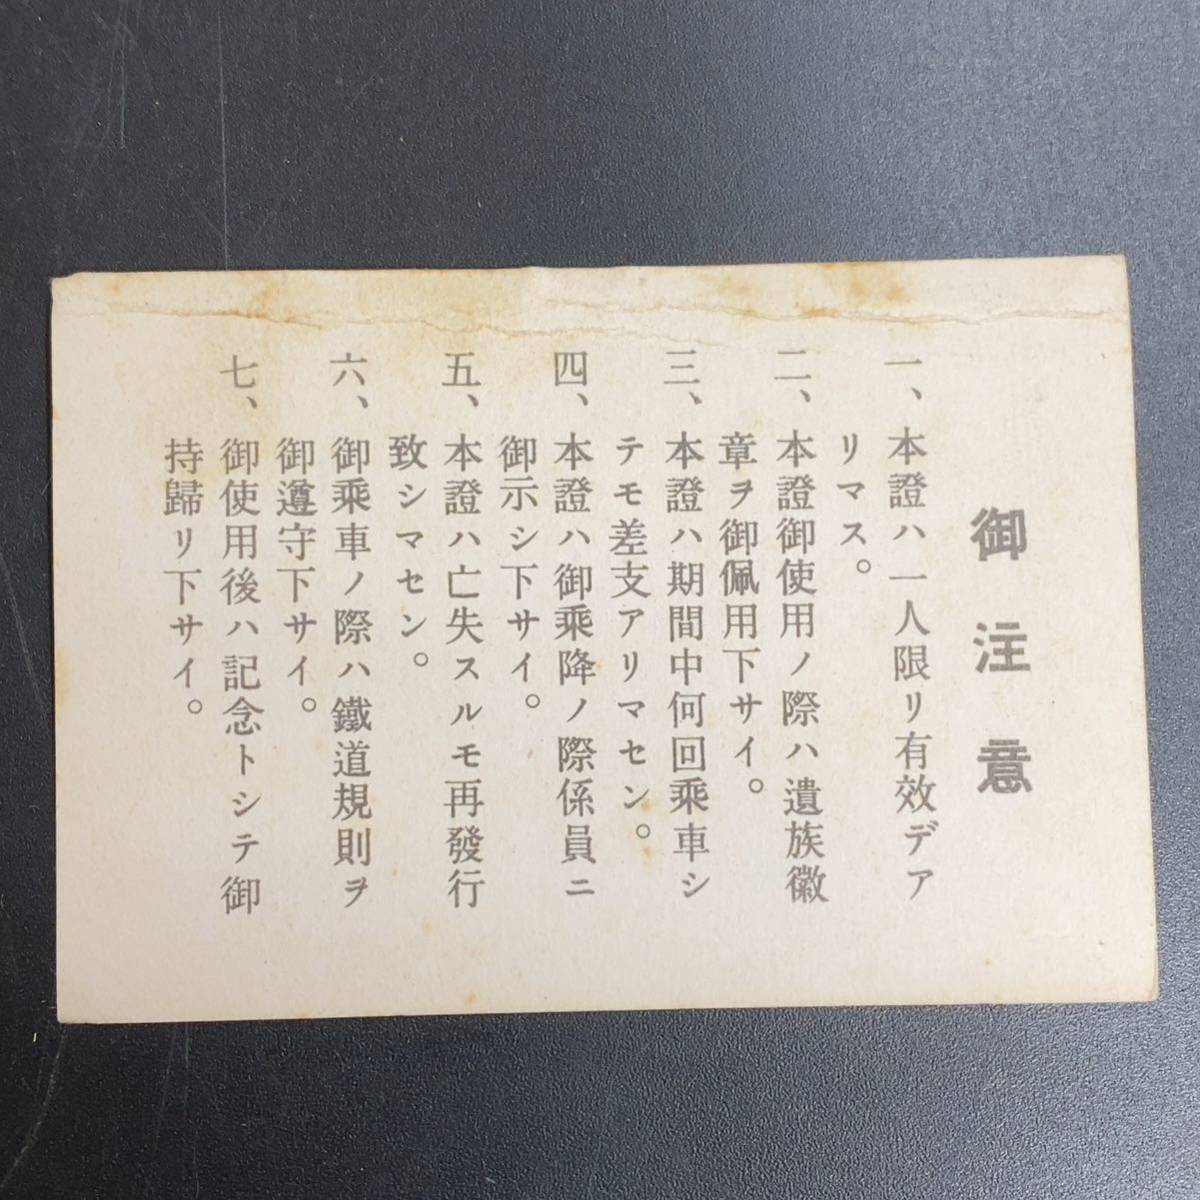 御注意
一、本證ハ一人限リ有效デア
リマス。
二、本證御使用ノ際ハ遺族徽
章ヲ御佩用下サイ。
三、本證ハ期間中何回乘車シ
テモ差支アリマセン。
四、本證ハ御乘降ノ際係員ニ
御示シ下サイ。
五、本證ハ亡失スルモ再發行
致シマセン。
六、御乘車ノ際ハ鐵道規則ヲ
御遵守下サイ。
七、御使用後ハ記念トシテ御
持歸リ下サイ。